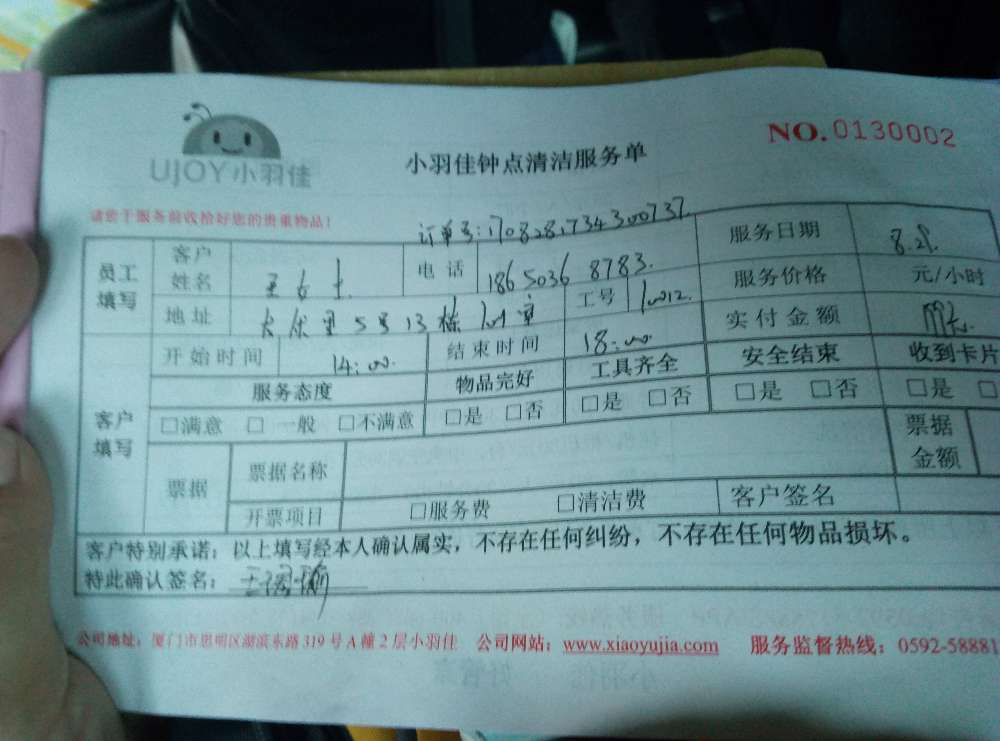 UJOY小羽佳
NO.0130002
小羽佳钟点清洁服务单
请您于服务前收拾好您的贵重物品!
订单号:1708281734300737
员工填写 客户姓名 王女士 电话 18650368783. 服务日期 8.29.
服务价格 元/小时
地址 5号13栋 工号 10012. 实付金额
开始时间 14:00. 结束时间 18:00
客户填写 服务态度 物品完好 工具齐全 安全结束 收到卡片
□满意 □一般 □不满意 □是 □否 □是 □否 □是 □否 □是 □
票据 票据名称 票据金额
开票项目 □服务费 □清洁费 客户签名
客户特别承诺:以上填写经本人确认属实,不存在任何纠纷,不存在任何物品损坏。
特此确认签名:
公司地址:厦门市思明区湖滨东路319号A幢2层小羽佳 公司网站:www.xiaoyujia.com 服务监督热线:0592-58881